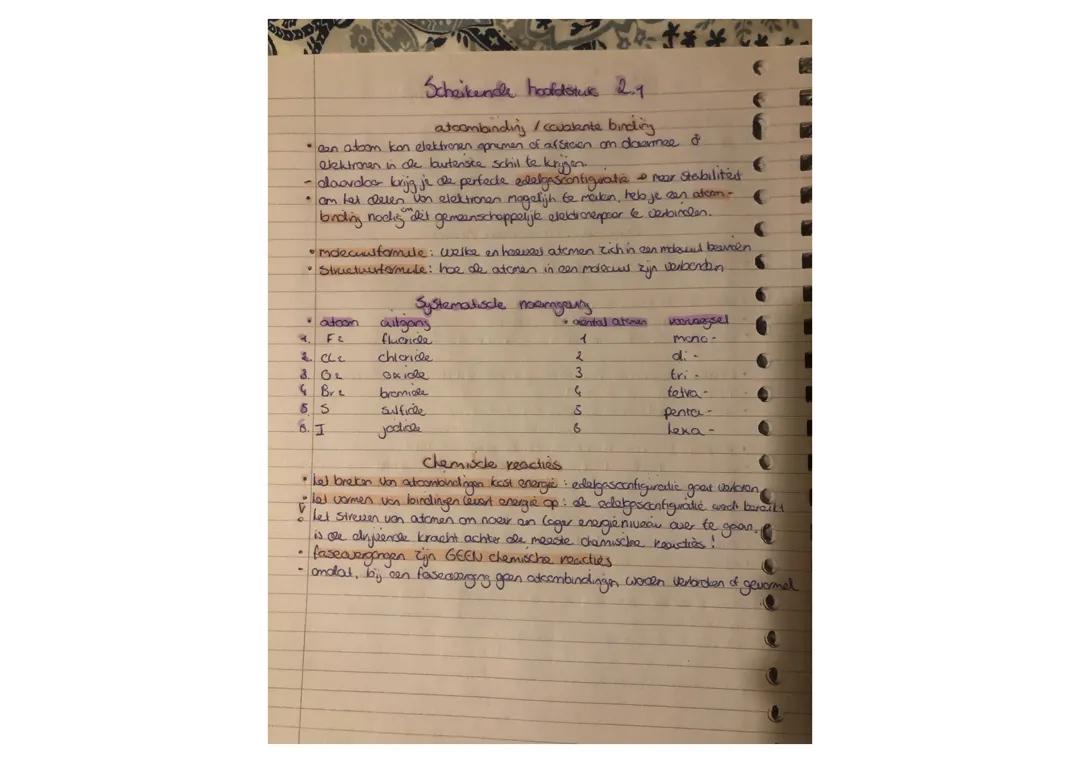 Scheikunde hoofdstuk 2.1
atoombinding / covalente binding
• een atoom kan elektronen opnemen of afstaan om daarmee 8
elektronen in de buitenste schil te krijgen.
- daardoor krijg je de perfecte edelgasconfiguratie → naar stabiliteit
• om het delen van elektronen mogelijk te maken, heb je een atoom-
binding nodig om dit gemeenschappelijk elektronenpaar te verbinden.
• molecuulformule: welke en hoeveel atomen zich in een molecuul bevinden
• Structuurformule: hoe de atomen in een molecuul zijn verbonden
Systematische naamgeving
• atoom uitgang • aantal atomen voorvoegsel
1. F2 fluoride 1 mono-
2. Cl2 chloride 2 di-
3. O2 oxide 3 tri-
4. Br2 bromide 4 tetra-
5. S sulfide 5 penta-
6. I jodide 6 hexa-
Chemische reacties
• het breken van atoombindingen kost energie: edelgasconfiguratie gaat verloren
• het vormen van bindingen levert energie op: de edelgasconfiguratie wordt bereikt
• het streven van atomen om naar een lager energieniveau over te gaan,
is de drijvende kracht achter de meeste chemische reacties!
• faseovergangen zijn GEEN chemische reacties
- omdat, bij een faseovergang geen atoombindingen worden verbroken of gevormd